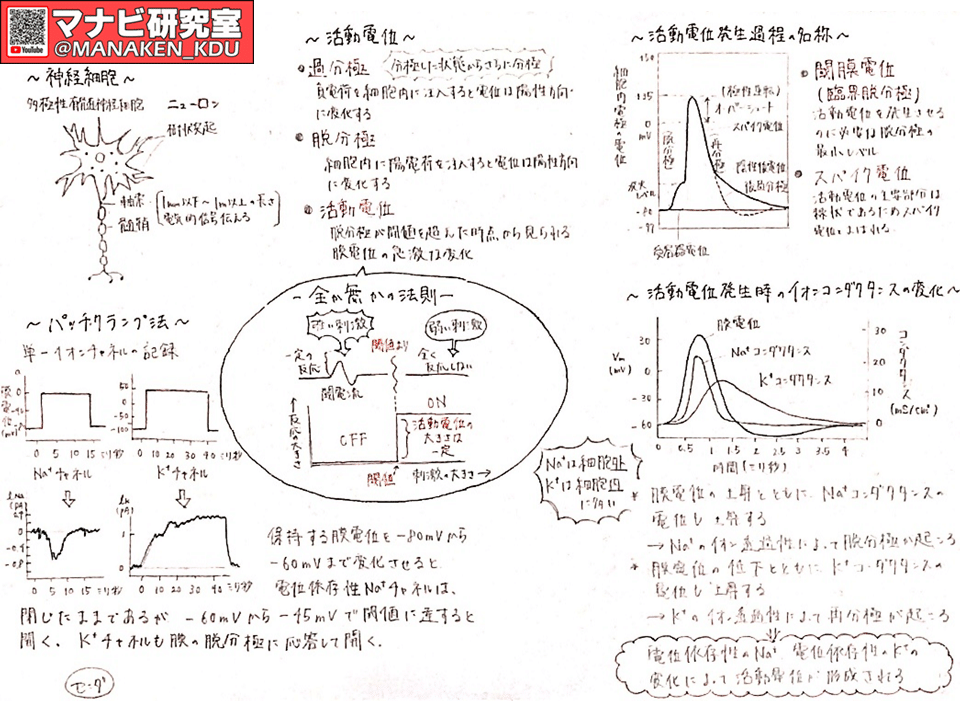 マナビ研究室
YouTube
@MANAKEN_KDU
～神経細胞～
多極性有髄神経細胞
ニューロン
樹状突起
軸索
1mm以下～1m以上の長さ
電気的信号伝える
髄鞘
～パッチクランプ法～
単一イオンチャネルの記録
0 5 10 15 ミリ秒
0 10 20 30 40 ミリ秒
Na⁺チャネル
K⁺チャネル
0 5 10 15 ミリ秒
0 10 20 30 40 ミリ秒
～活動電位～
過分極
分極した状態からさらに分極
負電荷を細胞内に注入すると電位は陰性方向
に変化する
脱分極
細胞内に陽電荷を注入すると電位は陽性方向
に変化する
活動電位
脱分極が閾値を超えた時点から見られる
膜電位の急激な変化
－全か無かの法則－
強い刺激
弱い刺激
一定の
反応
閾値より
全く
反応しない
閾電流
ON
OFF
活動電位の
大きさは
一定
↑反応の大きさ
閾値
刺激の大きさ→
保持する膜電位を－80mVから
－60mVまで変化させると、
電位依存性Na⁺チャネルは、
閉じたままであるが、－60mVから－45mVで閾値に達すると
開く。K⁺チャネルも膜の脱分極に応答して開く。
モーダ
～活動電位発生過程の名称～
細胞内電極の電位
0
mV
オーバーシュート
スパイク電位
脱分極
再分極
後過分極
閾膜電位
(臨界脱分極)
活動電位を発生させる
のに必要な脱分極の
最小レベル
スパイク電位
活動電位の主要部分は
棘状であるためスパイク
電位とよばれる
～活動電位発生時のイオンコンダクタンスの変化～
膜電位
Na⁺コンダクタンス
K⁺コンダクタンス
Vm
(mV)
30
0
-30
-60
30
20
10
0
コンダクタンス
(mS/cm²)
0 0.5 1 2 3 4
時間(ミリ秒)
Na⁺は細胞外
K⁺は細胞内
に多い
* 膜電位の上昇とともに、Na⁺コンダクタンスの
電位も上昇する
→Na⁺のイオン透過性によって脱分極が起こる
* 膜電位の低下とともに、K⁺コンダクタンスの
電位も上昇する
→K⁺のイオン透過性によって再分極が起こる
電位依存性のNa⁺、電位依存性のK⁺の
変化によって活動電位が形成される